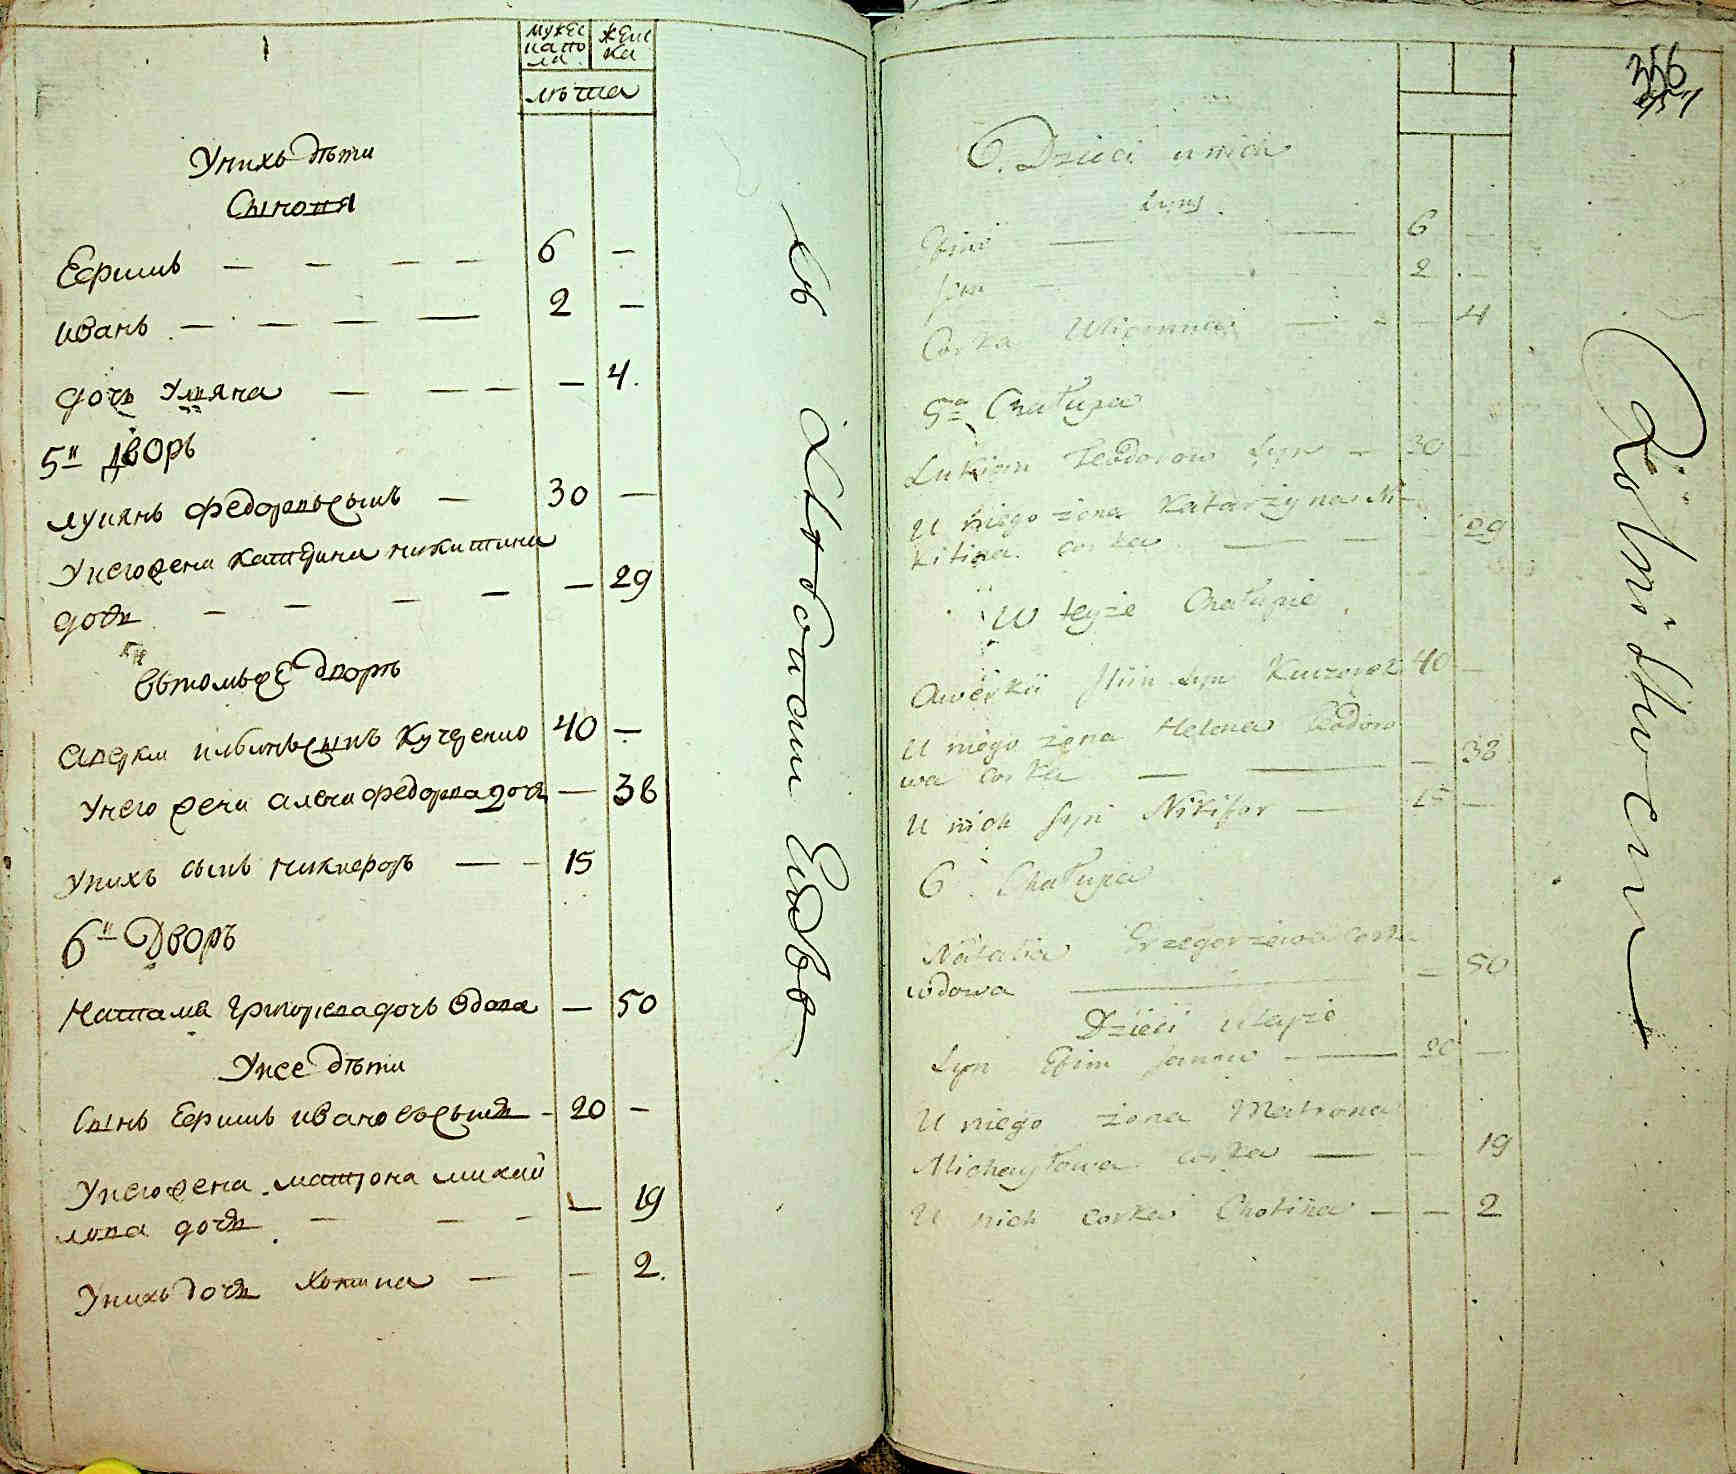 мужес
капо
ла
жен
ка
лѣта
Унихъ дѣти
Сыновя
Ефимъ — — — — 6 —
иванъ — — — — 2 —
дочъ Уляна — — — — 4.
5й дворъ
лукянъ федоровъ сынъ — 30 —
Унего жена катерина никитина
дочь — — — — — 29
вътомъже дворѣ
аверки илинъ сынъ Кучеренко 40 —
Унего жена алена федорова дочь — 38
Унихъ сынъ никифоръ — — 15
6й Дворъ
Наталя григорева дочъ вдова — 50
Унее дѣти
Сынъ Ефимъ ивановъ сынъ - 20 —
Унего жена матрона михай
лова дочь — — — — 19
Унихъ дочь хотина — — 2.
356
357
6. Dzieci u nich
Syny
Efim — — 6 —
Jwan — 2 —
Corka Ulianna — - — 4
5ta Chałupa
Lukian Teodorow Syn — 30 —
U niego żona Katarzyna Ni-
kitina corka — — — 29
W teyże Chałupie
Awerkii Iliin Syn Kuczerek 40 —
U niego żona Helena Teodoro
wa corka — — — 38
U nich syn Nikifor — 15 —
6. Chałupa
Natalia Grzegorzewa corka
wdowa — — 50
Dzieci u teyże
Syn Efim Janow — 20 —
U niego żona Matrona
Michayłowa corka — — 19
U nich corka Chotina — — 2